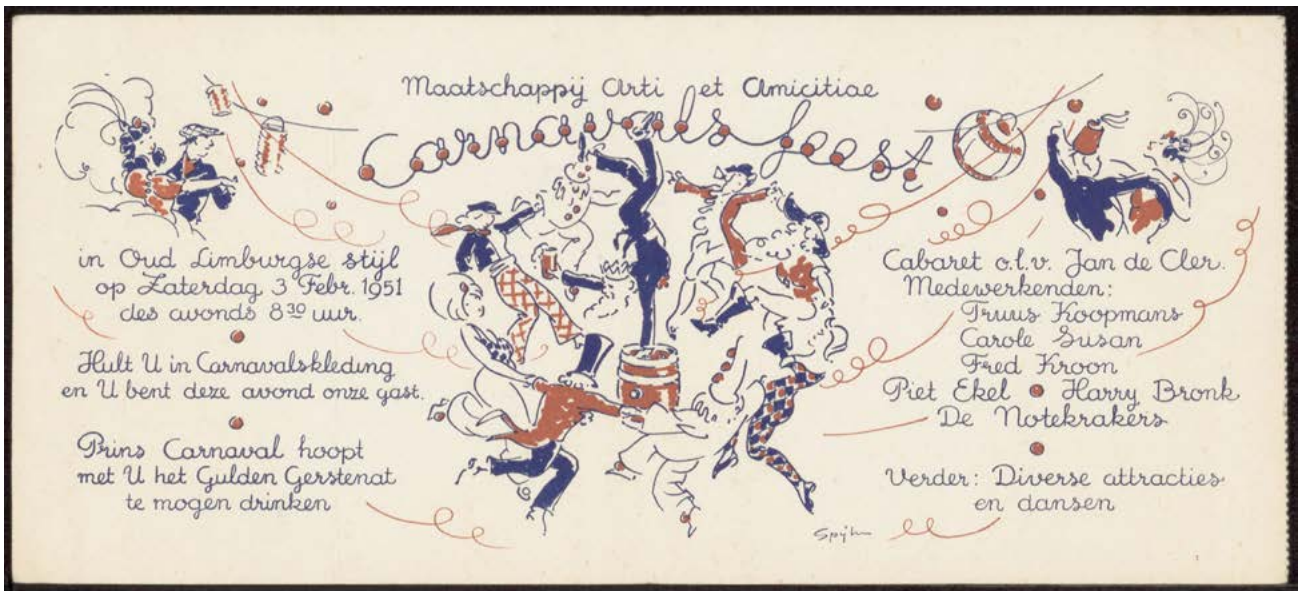 Maatschappij Arti et Amicitiae
Carnavalsfeest
in Oud Limburgse stijl
op Zaterdag 3 Febr. 1951
des avonds 8³⁰ uur.
Hult U in Carnavalskleding
en U bent deze avond onze gast.
Prins Carnaval hoopt
met U het Gulden Gerstenat
te mogen drinken
Cabaret o.l.v. Jan de Cler.
Medewerkenden:
Truus Koopmans
Carole Susan
Fred Kroon
Piet Ekel • Harry Bronk
De Notekrakers
Verder: Diverse attracties
en dansen